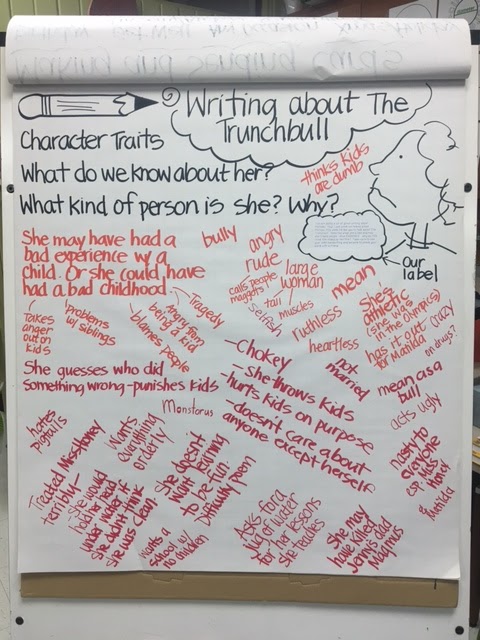 Making and sending cards
Writing about The
Trunchbull
Character Traits
What do we know about her?
What kind of person is she? Why?
-thinks kids
are dumb
our
label
She may have had a
bad experience w/ a
child. Or she could have
had a bad childhood
bully
angry
rude
calls people
maggots
large
woman
tall
muscles
selfish
mean
ruthless
heartless
she's
athletic
(she was
in the olympics)
has it out
for Matilda
crazy
on drugs?
Takes
anger
out on
kids
problems
w/ siblings
angry from
being a kid
-blames people
Tragedy
She guesses who did
something wrong-punishes kids
-Chokey
-She throws kids
-hurts kids on purpose
-doesn't care about
anyone except herself
not
married
mean as a
bull
acts ugly
Monstorus
hates
pigtails
Treated Miss Honey
terribly-
She would
hold her head
under water if
she didn't think
she was clean.
Wants
everything
orderly
wants a
school w/
no children
She doesn't
want learning
to be fun.
Difficulty poem
Asks for a
jug of water
for her lessons
she teaches
She may
have killed
Jenny's dad
Magnus
nasty to
everyone
esp. Miss
Honey
& Matilda